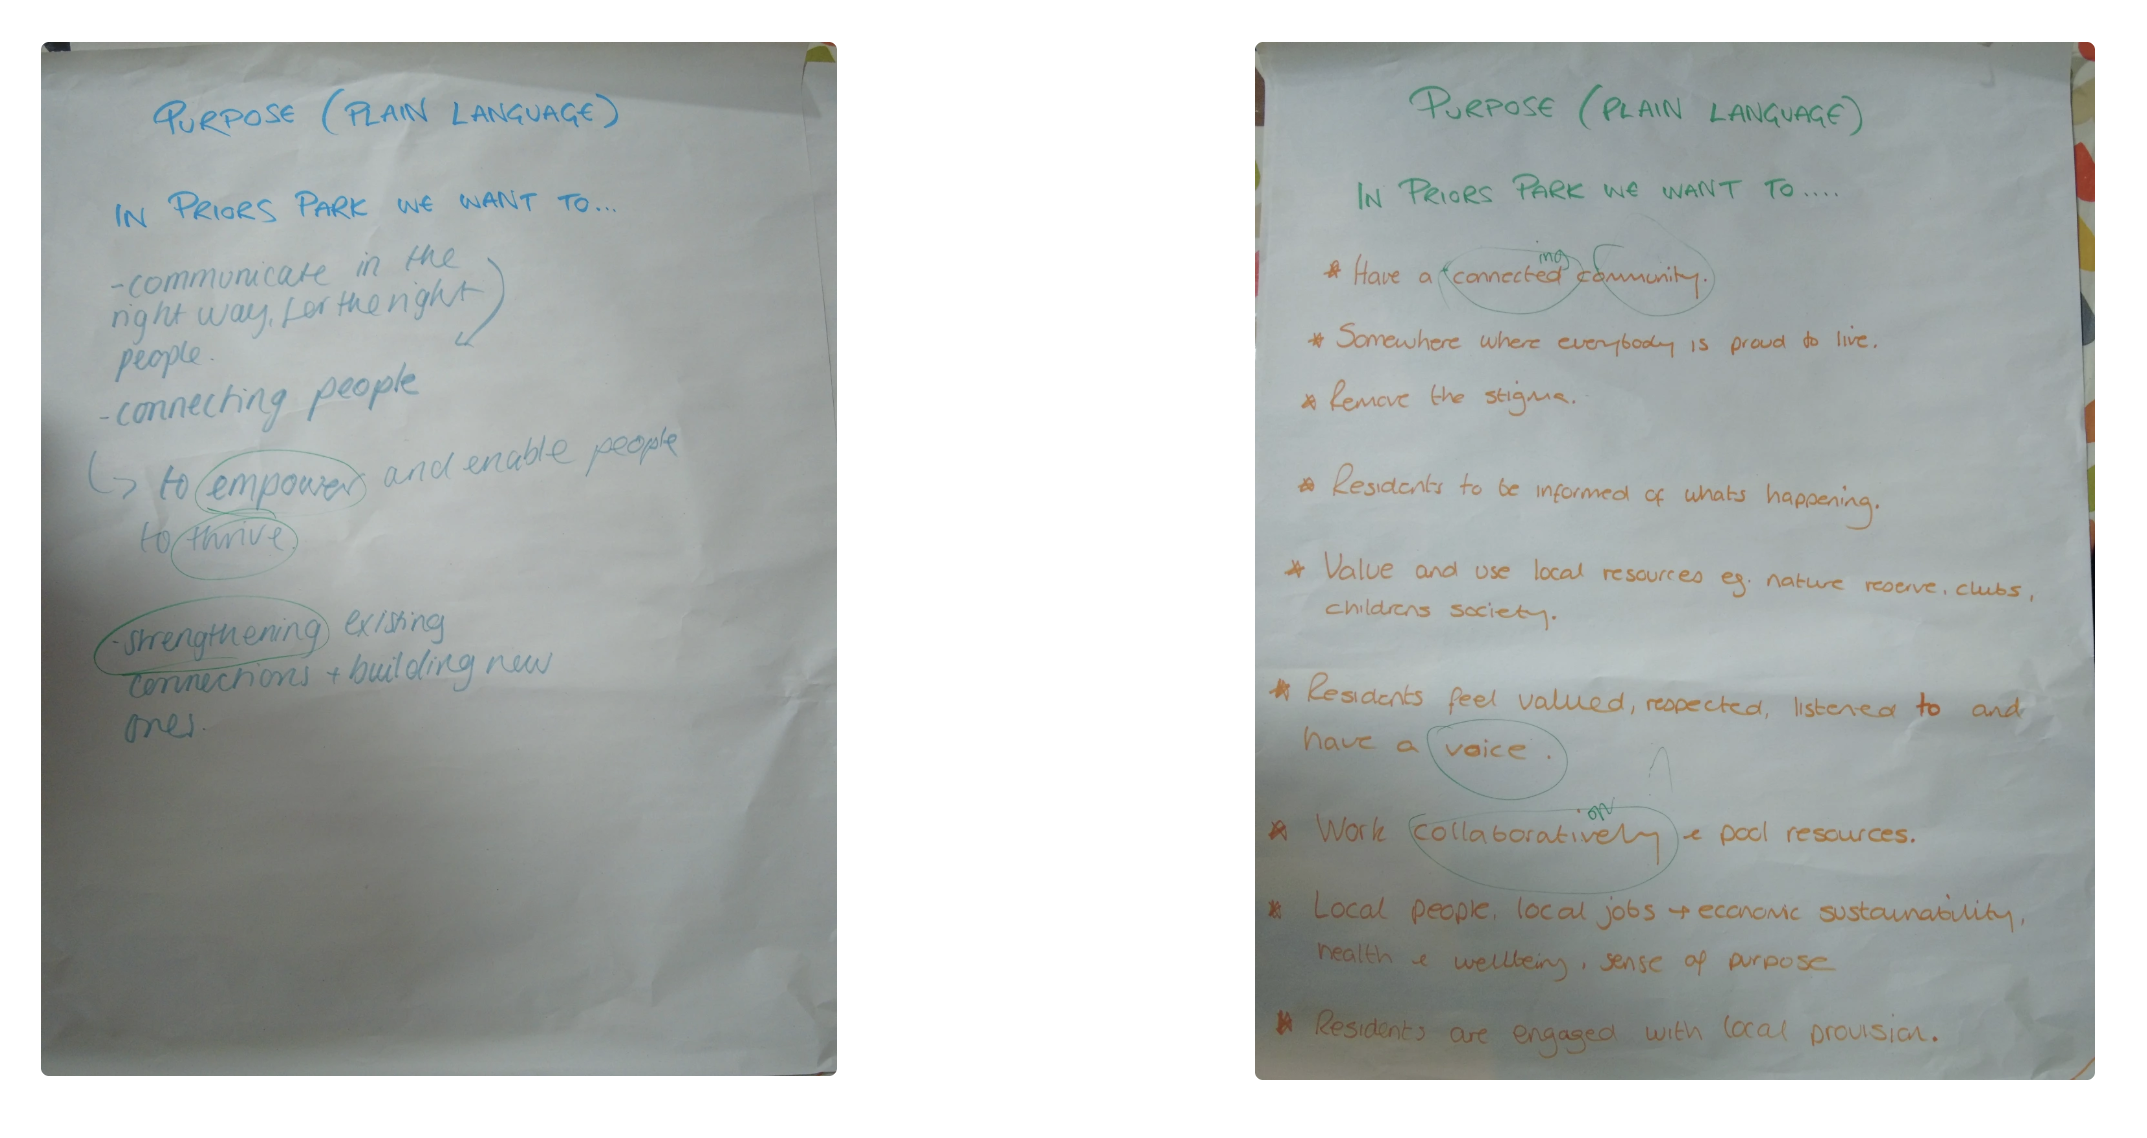 PURPOSE (PLAIN LANGUAGE)
IN PRIORS PARK WE WANT TO...
-communicate in the
right way, for the right
people.
-connecting people
to empower and enable people
to thrive.
-strengthening existing
connections + building new
ones.
PURPOSE (PLAIN LANGUAGE)
IN PRIORS PARK WE WANT TO....
ing
* Have a connected community.
* Somewhere where everybody is proud to live.
* Remove the stigma.
* Residents to be informed of whats happening.
* Value and use local resources eg. nature reserve, clubs,
childrens society.
* Residents feel valued, respected, listened to and
have a voice.
on
* Work collaboratively & pool resources.
* Local people, local jobs → economic sustainability,
health & wellbeing, sense of purpose
* Residents are engaged with local provision.